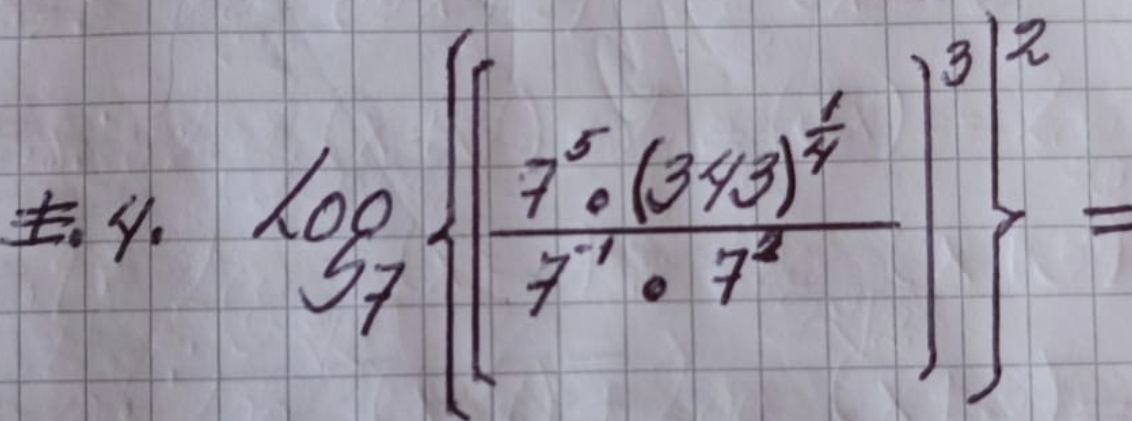 I.4. Log₇ {[ (7⁵ • (343)^(1/4)) / (7⁻¹ • 7²) ]³}² =